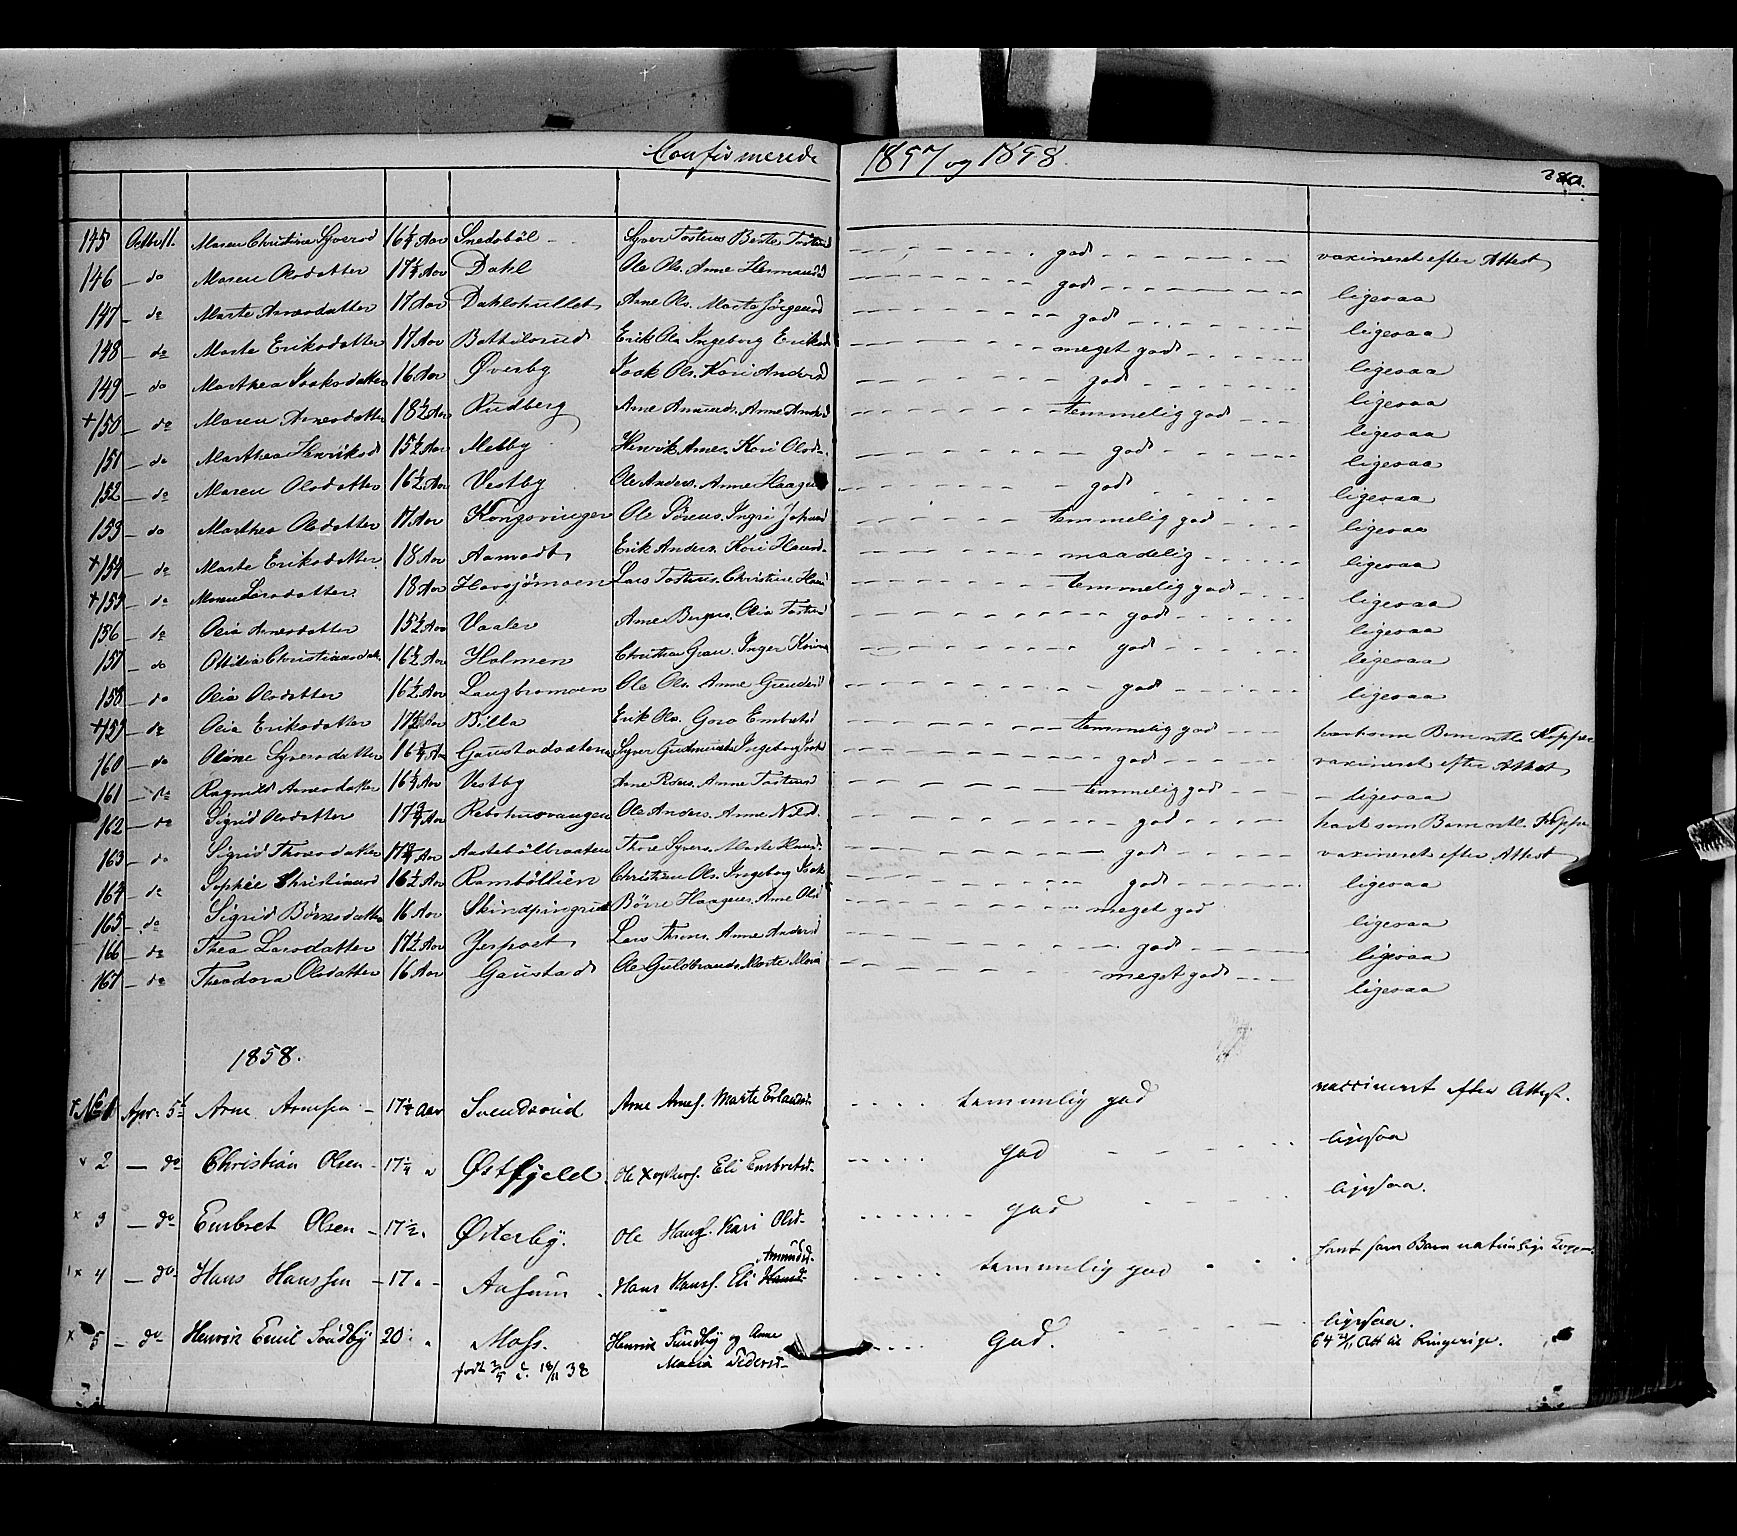 Confirmerede 1857 og 1858.
145 Octbr 11. Maren Christine Syversd 16¼ Aar Snedsböl Syver Tostens. Berte Tostensd god vaxineret efter Attest
146 do Maren Olsdatter 17¼ Aar Dahl Ole Ols. Anne Hermansd god ligesaa
147 do Marte Arnesdatter 17 Aar Dahlshullet Arne Ols. Marte Jörgensd god ligesaa
148 do Marte Eriksdatter 17 Aar Battilsrud Erik Ols Ingeborg Eriksd meget god ligesaa
149 do Marthea Isaksdatter 16 Aar Øverby Isak Ols. Kari Andersd god ligesaa
+150 do Maren Arnesdatter 18½ Aar Rudberg Arne Amunds. Anne Andersd temmelig god ligesaa
151 do Marthea Henriksd 15½ Aar Melby Henrik Arnes. Kari Olsd. god ligesaa
152 do Maren Olsdatter 16½ Aar Vestby Ole Anders. Anne Haagensd god ligesaa
153 do Marthea Olsdatter 17 Aar Kongsvinger Ole Sörens. Ingri Johansd temmelig god ligesaa
+154 do Marte Eriksdatter 18 Aar Aamodt Erik Anders. Kari Hansd. maadelig ligesaa
+155 do Maren Larsdatter 18 Aar Harsjömoen Lars Tostens. Christine Hansd temmelig god ligesaa
156 do Olia Arnesdatter 15½ Aar Vaaler Arne Bergers. Olia Tostensd god ligesaa
157 do Ottilia Christiansdat. 16½ Aar Holmen Christian Grau. Inger god ligesaa
158 do Olia Olsdatter 16½ Aar Langbromoen Ole Ols. Anne Gundersd god ligesaa
+159 do Olia Eriksdatter 17½ Aar Billa Erik Ols. Goro Embretsd temmelig god havt som Barn ntl. Kopper
160 do Oline Syversdatter 16¼ Aar Gaustadsætern Syver Gudmunds Ingeborg Isaksd god vaxineret efter Attest
161 do Ragnild Arnesdatter 16¼ Aar Vestby Arne Anne Tostensd temmelig god ligesaa
162 do Sigrid Olsdatter 17¾ Aar Rebshusvangen Ole Anders. Anne Nilsd. god havt som Barn ntl. Kopper
163 do Sigrid Thoresdatter 17¾ Aar Aasteböl­braaten Thore Syvers. Marte Hansd. god vaxineret efter Attest
164 do Sophie Christiansd 16½ Aar Ramböllien Christian Ols. Ingeborg Isaksd god ligesaa
165 do Sigrid Börresdatter 16 Aar Skindpingrud Börre Haagens. Anne Olsd meget god ligesaa
166 do Thea Larsdatter 17½ Aar Jerpset Lars Thores. Anne Andersd god ligesaa
167 do Theodora Olsdatter 16 Aar Gaustad Ole Guldbrands. Marte Mari meget god ligesaa
1858.
+ No 1 Apr. 5t Arne Arnesen 17¼ Aar Svendsrud Arne Arnes. Marte Erlandsd. temmelig god vaccineret efter Attest.
x 2 do Christian Olsen 17¼ " Østfjeld. Ole Eli Embretsd. god ligesaa
x 3 do Embret Olsen 17½ " Østerby. Ole Hans. Kari Olsd. god ligesaa.
x 4 do Hans Hanssen 17 " Aasum Hans Hanss. Eli Hansd. Amundsd. temmelig god havt som Barn naturlige Kopper
x 5 do Henrik Emil Sundby 20 " Moss. Henrik Sundby og Anne God. ligesaa.
født 38 Maria Pedersd. 64 Att til Ringerige.